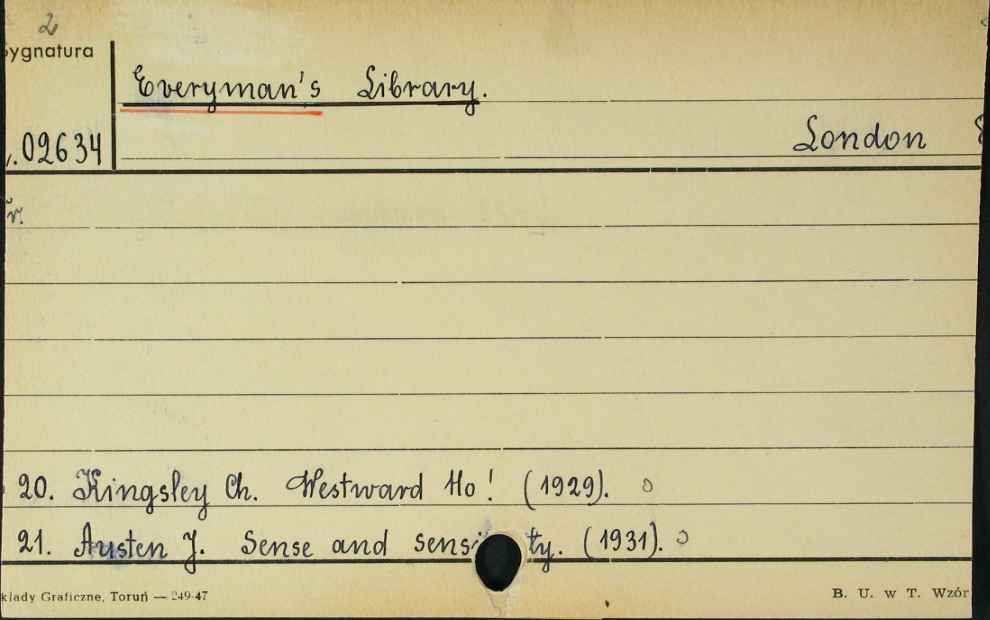 2
Sygnatura
Everyman's Library.
02634
London 8
Nr.
20. Kingsley Ch. Westward Ho! (1929).
21. Austen J. Sense and sensi ty. (1931).
kłady Graficzne, Toruń — 249-47
B. U. w T. Wzór